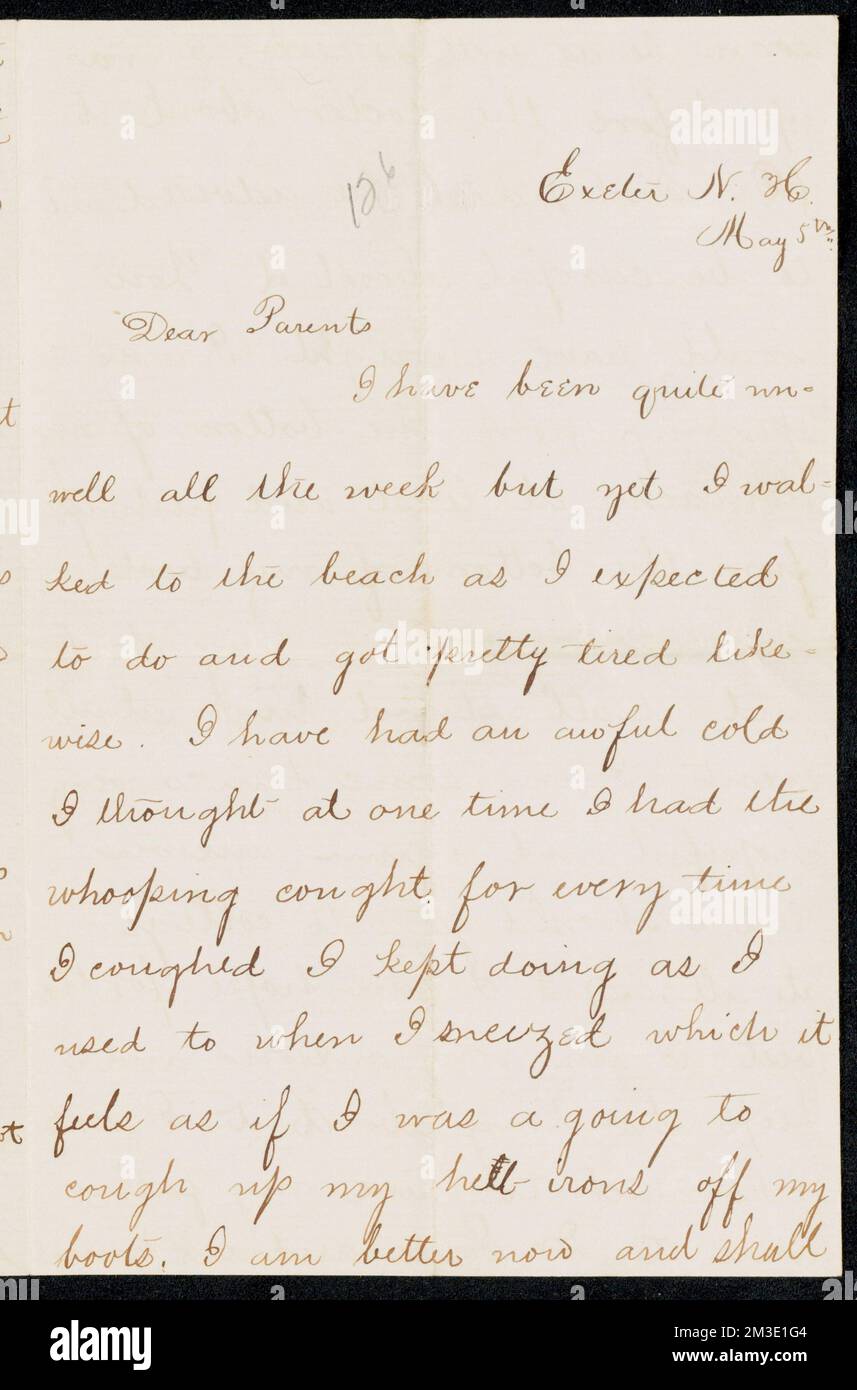 126
Exeter N. H.
May 5th
Dear Parents
I have been quite un=
well all the week but yet I wal=
ked to the beach as I expected
to do and got pretty tired like=
wise. I have had an awful cold
I thought at one time I had the
whooping cought. for every time
I coughed I kept doing as I
used to when I sneezed which it
feels as if I was a going to
cough up my irons off my
boots. I am better now and shall
alamy
Image ID: 2M3E1G4
www.alamy.com